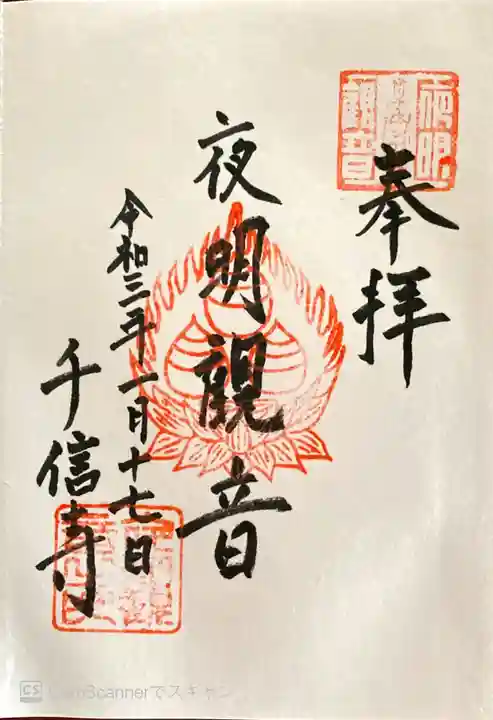 奉拝
夜明観音
令和三年一月十七日
千信寺
夜明
観音
CS CamScannerでスキャン